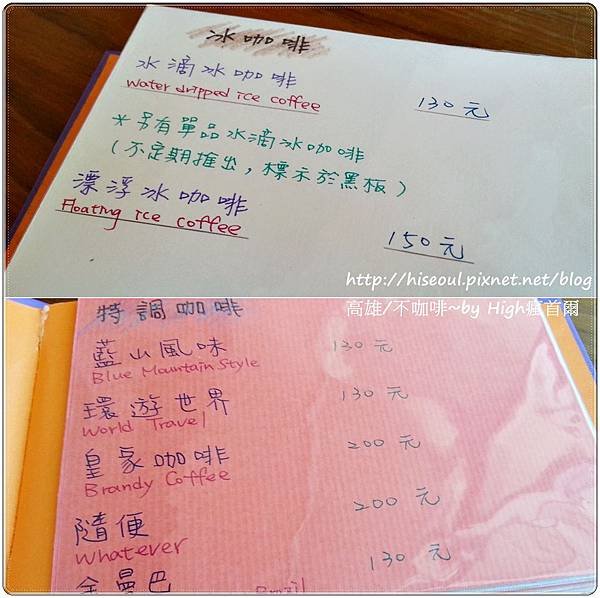 冰咖啡
水滴冰咖啡
Water dripped ice coffee 130元
*另有單品水滴冰咖啡
(不定期推出,標示於黑板)
漂浮冰咖啡
Floating ice coffee 150元
http://hiseoul.pixnet.net/blog
高雄/不咖啡~by High瘋首爾
特調咖啡
藍山風味 130元
Blue Mountain Style
環遊世界 130元
World Travel
皇家咖啡 200元
Brandy Coffee
隨便 200元
Whatever
金曼巴 130元
Brazil